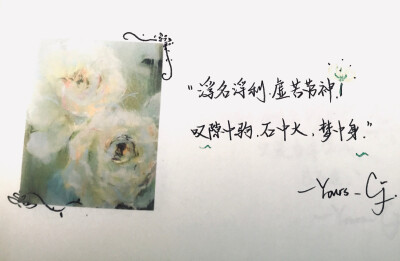 “浮名浮利，虚苦劳神！
叹隙中驹，石中火，梦中身。”
—Yours_Cj